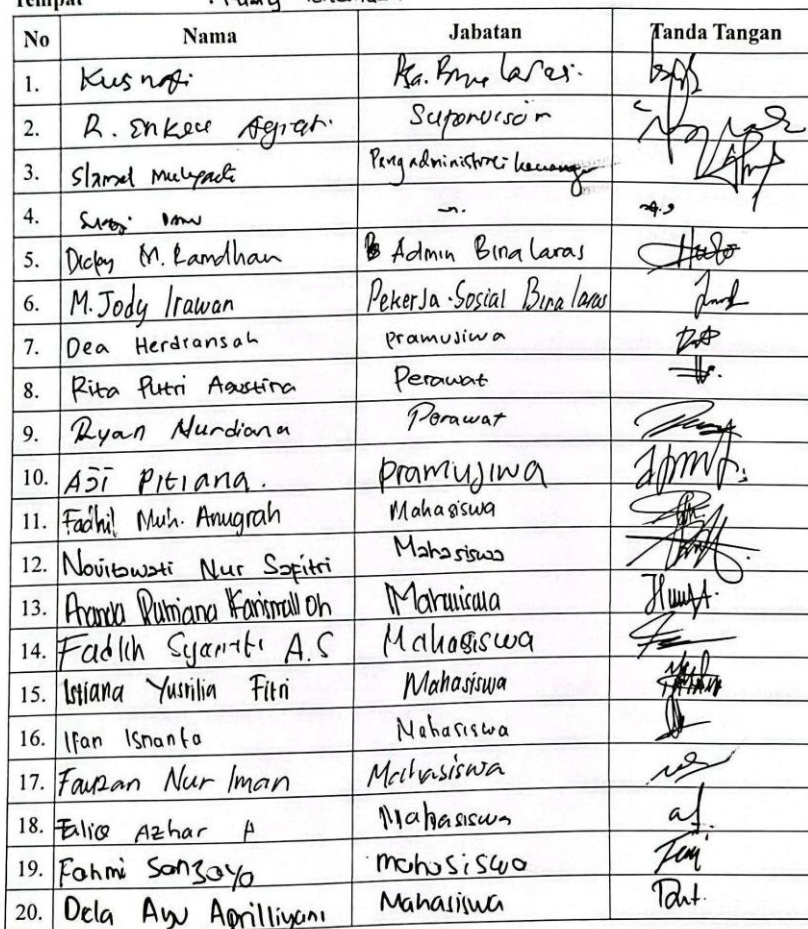 Tempat :
No Nama Jabatan Tanda Tangan
1. Kusnadi Ka. Bina Laras.
2. R. Enkeu Agiati Supervisor
3. Slamet Mulyadi Pengadministrasi keuangan
4.
5. Dicky M. Ramdhan Admin Bina Laras
6. M. Jody Irawan Pekerja Sosial Bina laras
7. Dea Herdiansah pramujiwa
8. Rita Putri Agustina Perawat
9. Ryan Nurdiana Perawat
10. Aji Pitiana. pramujiwa
11. Fadhil Muh. Anugrah Mahasiswa
12. Novitawati Nur Safitri Mahasiswa
13. Ananda Mahasiswa
14. Fadlih A.S Mahasiswa
15. Istiana Yusrilia Fitri Mahasiswa
16. Ifan Isnanto Mahasiswa
17. Fauzan Nur Iman Mahasiswa
18. Azhar A Mahasiswa
19. Fahmi Sanjaya mahasiswa
20. Dela Ayu Aprilliyani Mahasiswa